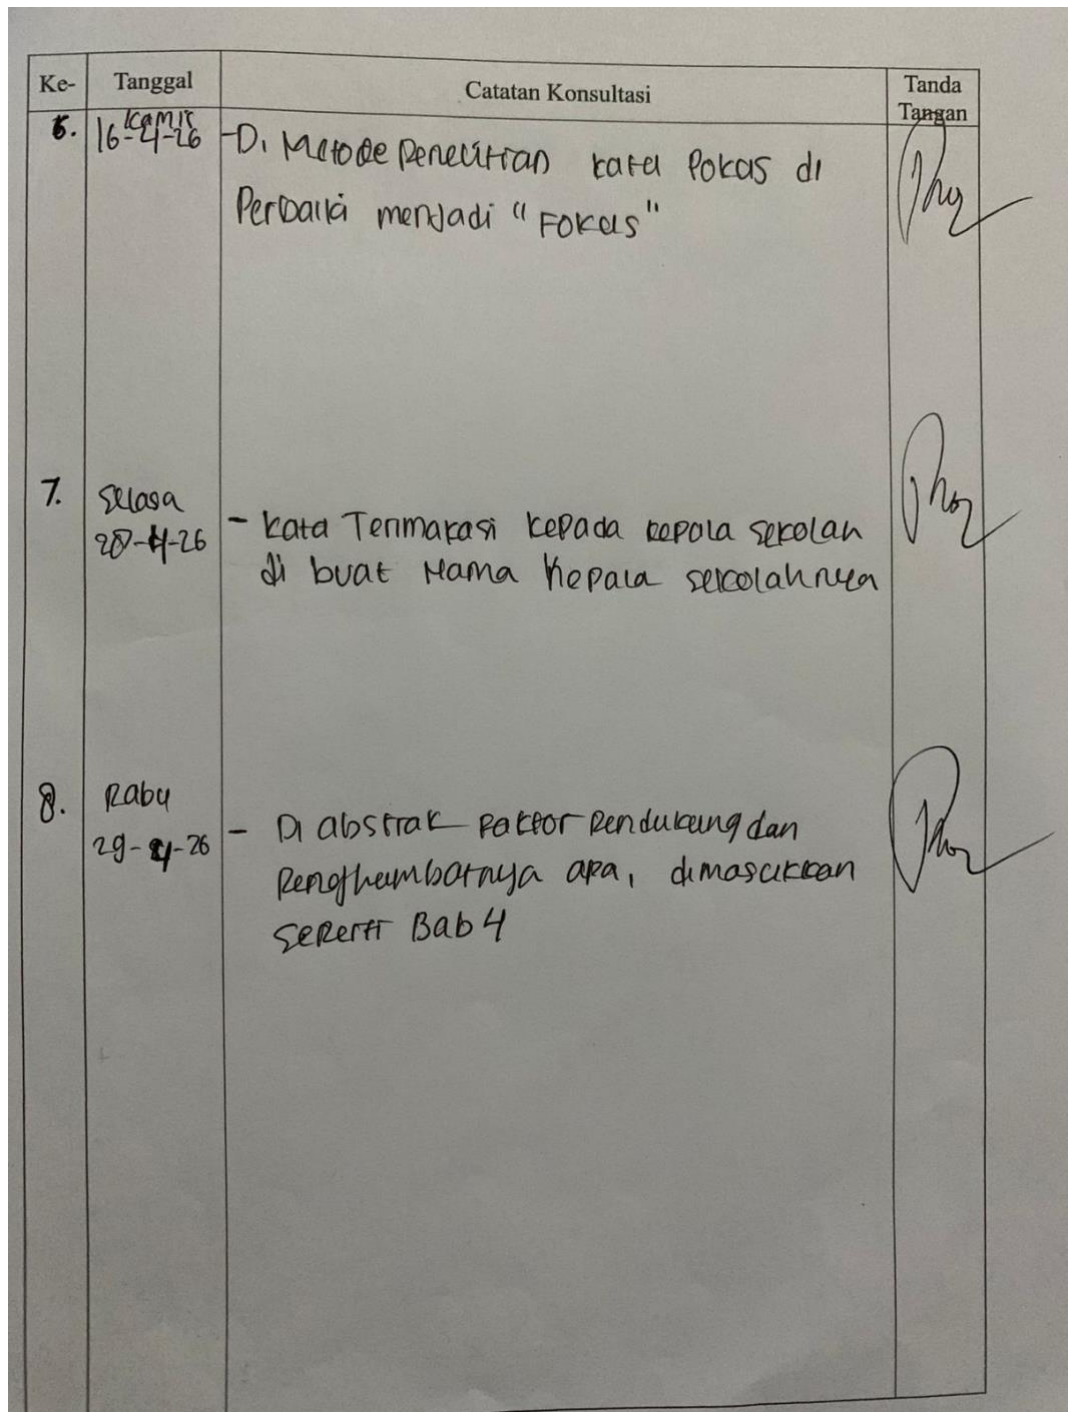 Ke- Tanggal Catatan Konsultasi Tanda Tangan
6. Kamis
16-4-26
-Di Metode Penelitian kata Pokus di
Perbaiki menjadi "Fokus"
7. Selasa
28-4-26
- Kata Terimakasi kepada kepala sekolah
di buat Nama Kepala sekolahnya
8. Rabu
29-4-26
- Di abstrak Paktor Pendukung dan
Penghambatnya apa, dimasukkan
seperti Bab 4